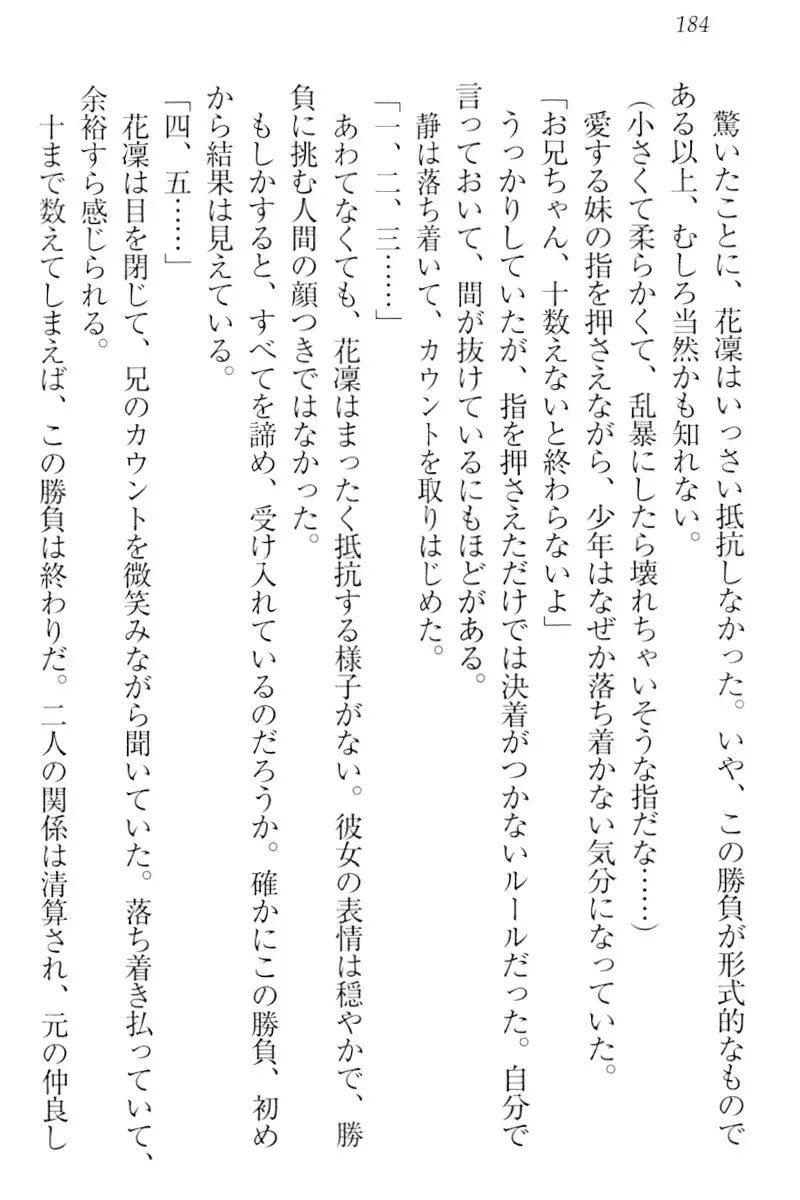 184
驚いたことに、花凜はいっさい抵抗しなかった。いや、この勝負が形式的なもので
ある以上、むしろ当然かも知れない。
(小さくて柔らかくて、乱暴にしたら壊れちゃいそうな指だな……)
愛する妹の指を押さえながら、少年はなぜか落ち着かない気分になっていた。
「お兄ちゃん、十数えないと終わらないよ」
うっかりしていたが、指を押さえただけでは決着がつかないルールだった。自分で
言っておいて、間が抜けているにもほどがある。
静は落ち着いて、カウントを取りはじめた。
「一、二、三……」
あわてなくても、花凜はまったく抵抗する様子がない。彼女の表情は穏やかで、勝
負に挑む人間の顔つきではなかった。
もしかすると、すべてを諦め、受け入れているのだろうか。確かにこの勝負、初め
から結果は見えている。
「四、五……」
花凜は目を閉じて、兄のカウントを微笑みながら聞いていた。落ち着き払っていて、
余裕すら感じられる。
十まで数えてしまえば、この勝負は終わりだ。二人の関係は清算され、元の仲良し